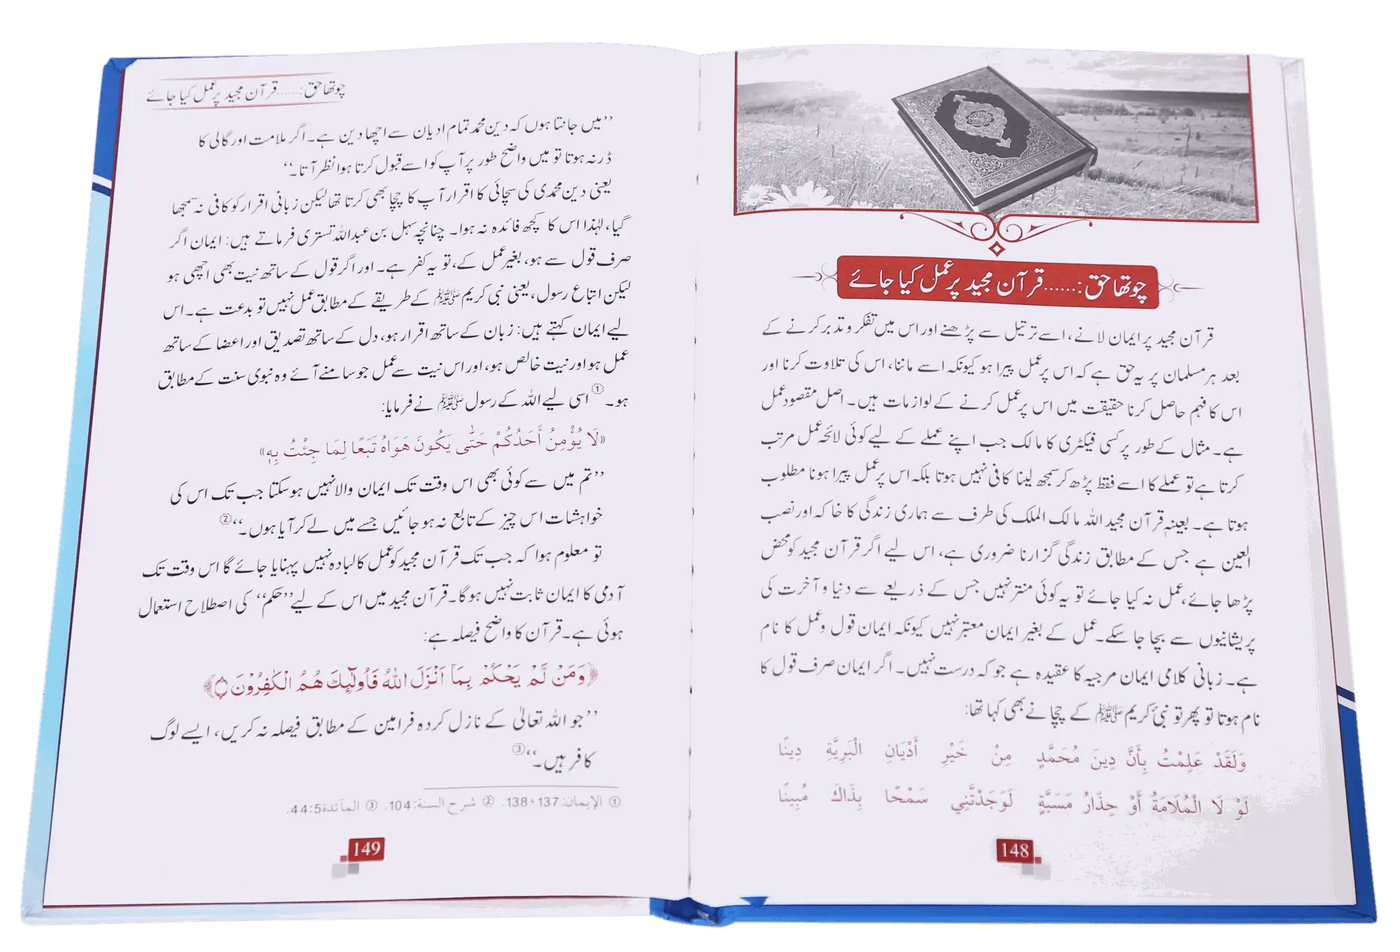 چوتھا حق:......قرآن مجید پر عمل کیا جائے
قرآن مجید پر ایمان لانے، اسے ترتیل سے پڑھنے اور اس میں تفکر و تدبر کرنے کے
بعد ہر مسلمان پر یہ حق ہے کہ اس پر عمل پیرا ہو کیونکہ اسے ماننا، اس کی تلاوت کرنا اور
اس کا فہم حاصل کرنا حقیقت میں اس پر عمل کرنے کے لوازمات ہیں۔ اصل مقصود عمل
ہے۔ مثال کے طور پر کسی فیکٹری کا مالک جب اپنے عملے کے لیے کوئی لائحہ عمل مرتب
کرتا ہے تو عملے کا اسے فقط پڑھ کر سمجھ لینا کافی نہیں ہوتا بلکہ اس پر عمل پیرا ہونا مطلوب
ہوتا ہے۔ بعینہٖ قرآن مجید اللہ مالک الملک کی طرف سے ہماری زندگی کا خاکہ اور نصب
العین ہے جس کے مطابق زندگی گزارنا ضروری ہے، اس لیے اگر قرآن مجید کو محض
پڑھا جائے، عمل نہ کیا جائے تو یہ کوئی منتر نہیں جس کے ذریعے سے دنیا و آخرت کی
پریشانیوں سے بچا جا سکے۔ عمل کے بغیر ایمان معتبر نہیں کیونکہ ایمان قول و عمل کا نام
ہے۔ زبانی کلامی ایمان مرجیہ کا عقیدہ ہے جو کہ درست نہیں۔ اگر ایمان صرف قول کا
نام ہوتا تو پھر تو نبیٔ کریم ﷺ کے چچا نے بھی کہا تھا:
وَلَقَدْ عَلِمْتُ بِأَنَّ دِينَ مُحَمَّدٍ مِنْ خَيْرِ أَدْيَانِ الْبَرِيَّةِ دِينًا
لَوْ لَا الْمُلَامَةُ أَوْ حِذَارُ مَسَبَّةٍ لَوَجَدْتَّنِي سَمْحًا بِذَاكَ مُبِينًا
148
چوتھا حق:......قرآن مجید پر عمل کیا جائے
’’میں جانتا ہوں کہ دین محمد تمام ادیان سے اچھا دین ہے۔ اگر ملامت اور گالی کا
ڈر نہ ہوتا تو میں واضح طور پر آپ کو اسے قبول کرتا ہوا نظر آتا۔‘‘
یعنی دین محمدی کی سچائی کا اقرار آپ کا چچا بھی کرتا تھا لیکن زبانی اقرار کو کافی نہ سمجھا
گیا، لہٰذا اس کا کچھ فائدہ نہ ہوا۔ چنانچہ سہل بن عبداللہ تستری فرماتے ہیں: ایمان اگر
صرف قول سے ہو، بغیر عمل کے، تو یہ کفر ہے۔ اور اگر قول کے ساتھ نیت بھی اچھی ہو
لیکن اتباع رسول، یعنی نبی کریم ﷺ کے طریقے کے مطابق عمل نہیں تو بدعت ہے۔ اس
لیے ایمان کہتے ہیں: زبان کے ساتھ اقرار ہو، دل کے ساتھ تصدیق اور اعضا کے ساتھ
عمل ہو اور نیت خالص ہو، اور اس نیت سے عمل جو سامنے آئے وہ نبوی سنت کے مطابق
ہو۔① اسی لیے اللہ کے رسول ﷺ نے فرمایا:
«لَا يُؤْمِنُ أَحَدُكُمْ حَتَّى يَكُونَ هَوَاهُ تَبَعًا لِمَا جِئْتُ بِهٖ»
’’تم میں سے کوئی بھی اس وقت تک ایمان والا نہیں ہو سکتا جب تک اس کی
خواہشات اس چیز کے تابع نہ ہو جائیں جسے میں لے کر آیا ہوں۔‘‘②
تو معلوم ہوا کہ جب تک قرآن مجید کو عمل کا لبادہ نہیں پہنایا جائے گا اس وقت تک
آدمی کا ایمان ثابت نہیں ہو گا۔ قرآن مجید میں اس کے لیے ’’حکم‘‘ کی اصطلاح استعمال
ہوئی ہے۔ قرآن کا واضح فیصلہ ہے:
﴿وَمَنْ لَّمْ يَحْكُمْ بِمَآ اَنْزَلَ اللّٰهُ فَاُولٰٓئِكَ هُمُ الْكٰفِرُوْنَ﴾
’’جو اللہ تعالیٰ کے نازل کردہ فرامین کے مطابق فیصلہ نہ کریں، ایسے لوگ
کافر ہیں۔‘‘③
① الإيمان: 137، 138. ② شرح السنة: 104. ③ المآئدة 44:5.
149